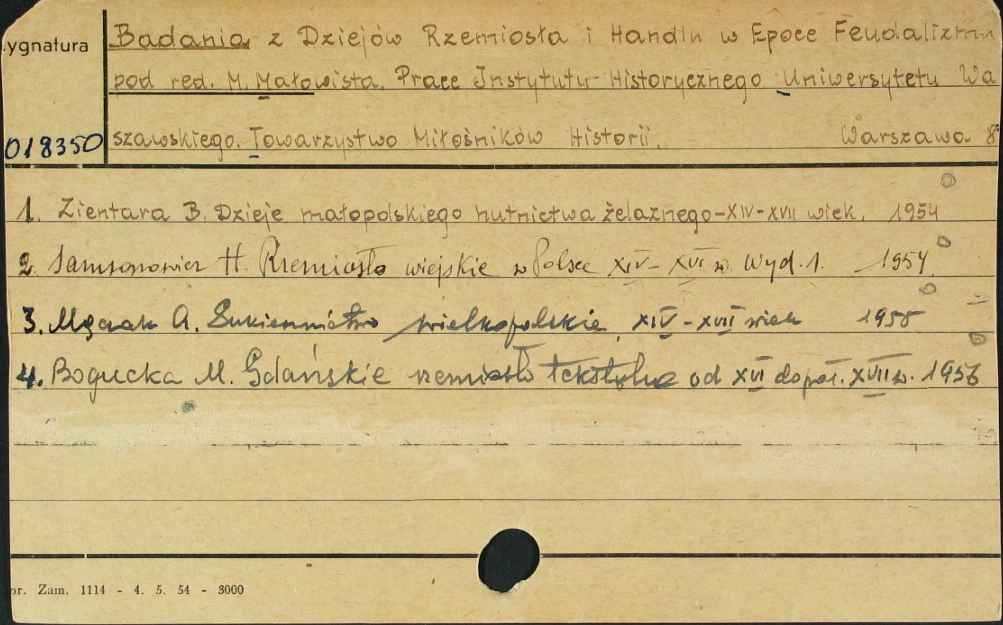 ygnatura
Badania z Dziejów Rzemiosła i Handlu w Epoce Feudalizmu
pod red. M. Małowista. Prace Instytutu Historycznego Uniwersytetu Wa
018350 szawskiego. Towarzystwo Miłośników Historii. Warszawa 8°
1. Zientara B. Dzieje małopolskiego hutnictwa żelaznego-XIV-XVII wiek. 1954
2. Samsonowicz H. Rzemiosło wiejskie w Polsce XIV-XVI w. Wyd.1. 1954
3. Mączak A. Sukiennictwo wielkopolskie XIV-XVII wiek 1955
4. Bogucka M. Gdańskie rzemiosło tekstylne od XVI do poł. XVII w. 1956
or. Zam. 1114 - 4. 5. 54 - 3000